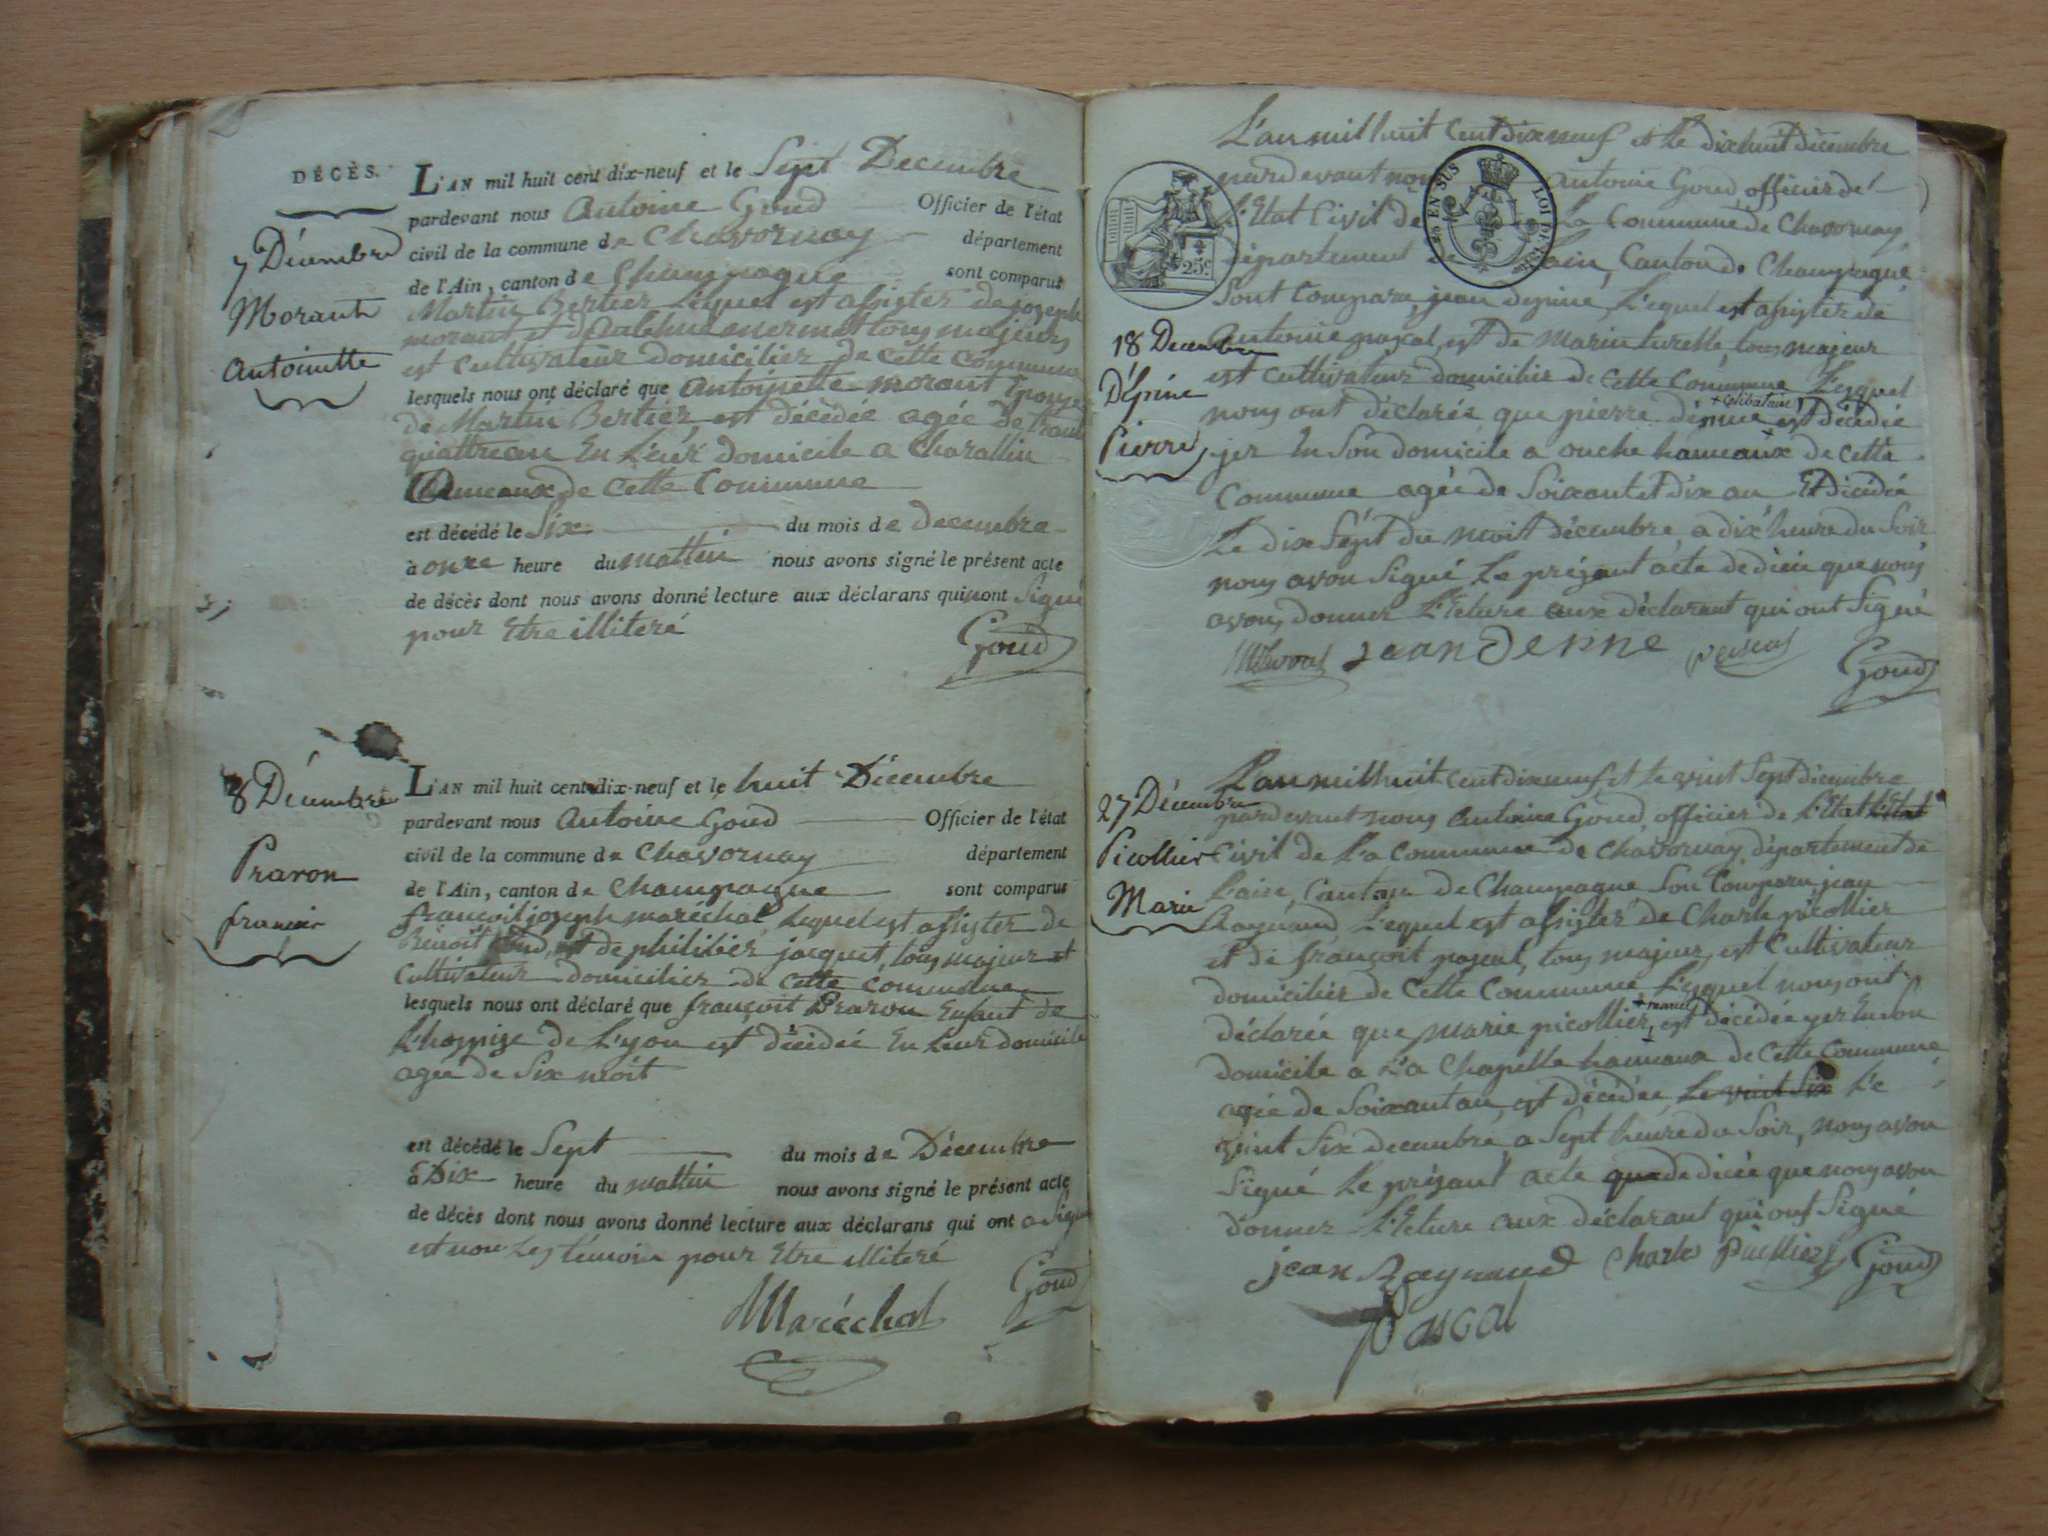 DÉCÈS.
7 Décembre
Morant
Antoinette
L'AN mil huit cent dix-neuf et le Sept Decembre
pardevant nous Antoine Goud Officier de l'état
civil de la commune de Chavornay département
de l'Ain, canton de Champagne sont comparus
Martin Bertier Lequel est assister de joseph
morant et tous majeurs
est cultivateur domicilier de cette commune
lesquels nous ont déclaré que Antoinette morant Epouse
de Martin Bertier est décédée agée de trant
quattre an En Leur domicile a Charallin
hameaux de cette Commune
est décédé le Six du mois de decembre
à onze heure du mattin nous avons signé le présent acte
de décès dont nous avons donné lecture aux déclarans qui nont Signé
pour Etre illiteré
Goud
8 Décembre
Pravon
francois
L'AN mil huit cent dix-neuf et le huit Décembre
pardevant nous Antoine Goud Officier de l'état
civil de la commune de Chavornay département
de l'Ain, canton de Champagne sont comparus
françoit joseph maréchal Lequel est assister de
Benoit et de philibier jacquet, tous majeur et
Cultivateur domicilier de Cette Commune
lesquels nous ont déclaré que françoit Pravon Enfant de
L'hospize de Lyon est décédé En Leur domicile
agée de Six moit
est décédé le Sept du mois de Décembre
à Dix heure du mattin nous avons signé le présent acte
de décès dont nous avons donné lecture aux déclarans qui ont a Signé
est non Les témoin pour Etre illiteré
Goud
Maréchal
L'an mil huit Cent dix neuf et Le dix huit décembre
pardevant nous Antoine Goud officier de
L'Etat Civil de La Commune de Chavornay
département de L'ain, Canton de Champagne
25 EN SUS LOI DE
25c
Sont Comparu, jean depine, Lequel est assister de
Antoine pascal, est de Marin turelle, tous majeur
est cultivateur domicilié de cette Commune Lesquel
18 Decembre
D'Épine
Pierre
+ célibataire
nous ont déclarée que pierre dépine + est décédée
yer En Son domicile a ouche hameaux de cette
Commune agée de Soixant et dix an Et décédée
Le dix Sept du moit décembre, a dix heure du Soir
nous avon Signé Le présant acte de décée que nous
avons donner L'Ecture aux déclarant qui ont Signé
jean depine pascal
Goud
27 Décembre
Picollier
Marie
L'an mil huit cent dix neuf, et Le vint Sept décembre
pardevant nous Antoine Goud, officier de L'Etat L'Etat
Civil de La Commune de Chavornay, département de
L'ain, Canton de Champagne Son Comparu, jean
Raynaud, Lequel est assister de Charle picollier
et de françoit pascal, tous majeur, est Cultivateur
domiciliés de Cette Commune Lesquel nous ont
déclarée que marie picollier, + est décédée yer En Son
domicile a La Chapelle hameaux de Cette Commune
agée de Soixant an, est décédée Le vint Six Le
vint Six decembre, a Sept heure du Soir, nous avon
Signé Le présant acte que de décée que nous avon
donner L'Ecture aux déclarant qui ont Signé
jean Raynaud Charles Picollier Goud
Pascal